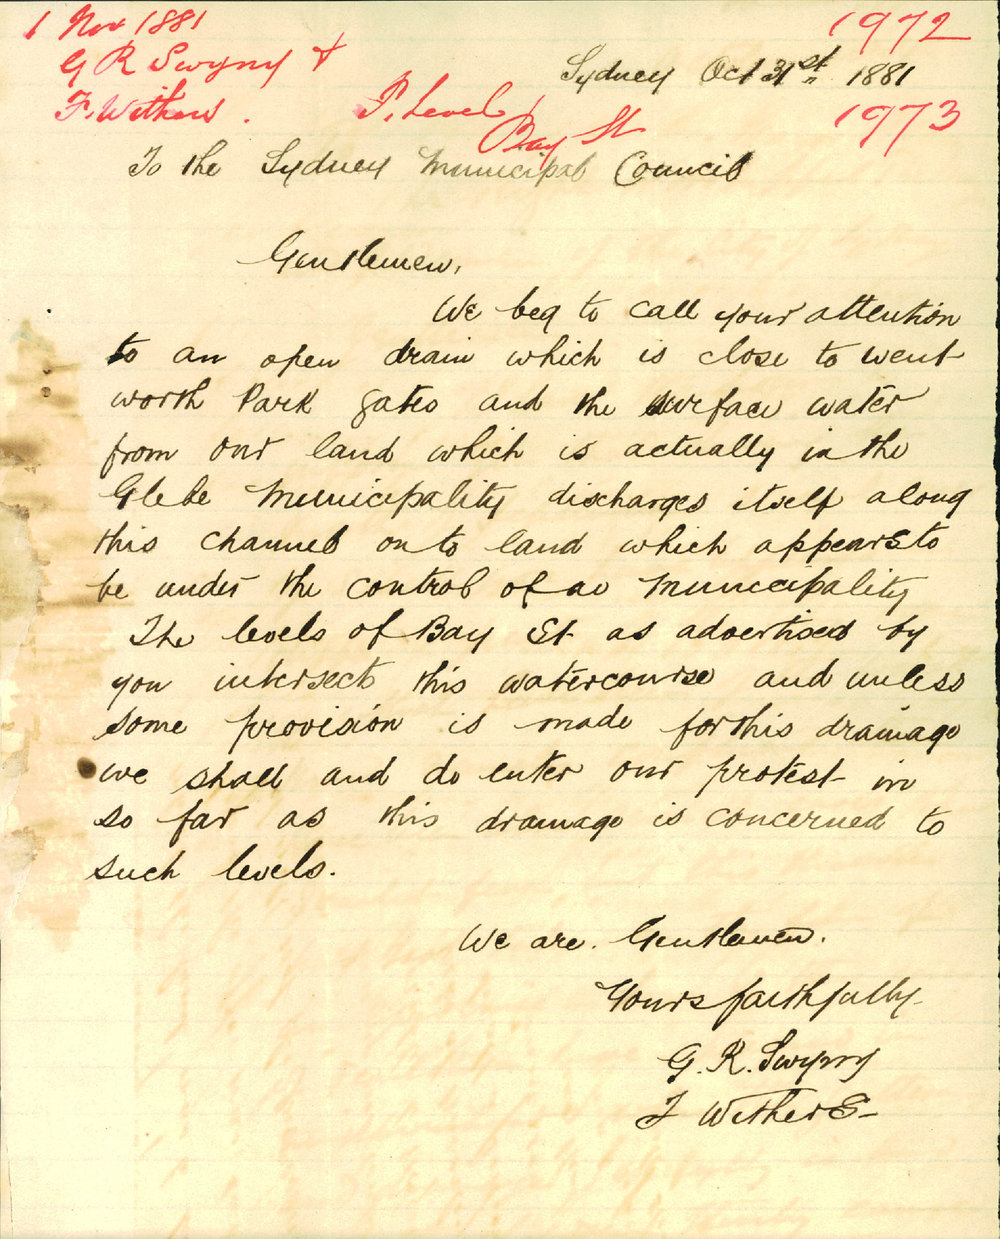 1 Nov 1881
G R Swyny &
F. Withers.
P. Level
Bay St
1972
1973
Sydney Oct 31st 1881
To the Sydney Municipal Council
Gentlemen,
We beg to call your attention
to an open drain which is close to Went
worth Park gates and the surface water
from our land which is actually in the
Glebe Municipality discharges itself along
this channel on to land which appears to
be under the control of no Municipality
The levels of Bay St as advertised by
you intersect this watercourse and unless
some provision is made for this drainage
we shall and do enter our protest in
so far as this drainage is concerned to
such levels.
We are. Gentlemen.
Yours faithfully
G. R. Swyny
F Withers